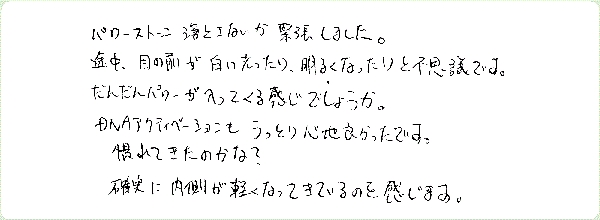 パワーストーン 落とさないか 緊張しました。
途中、目の前が 白い光ったり、明るくなったりと不思議です。
だんだんパワーが入ってくる感じでしょうか。
DNAアクティベーションも うっとり心地良かったです。
慣れてきたのかな?
確実に 内側が軽くなってきているのを感じます。